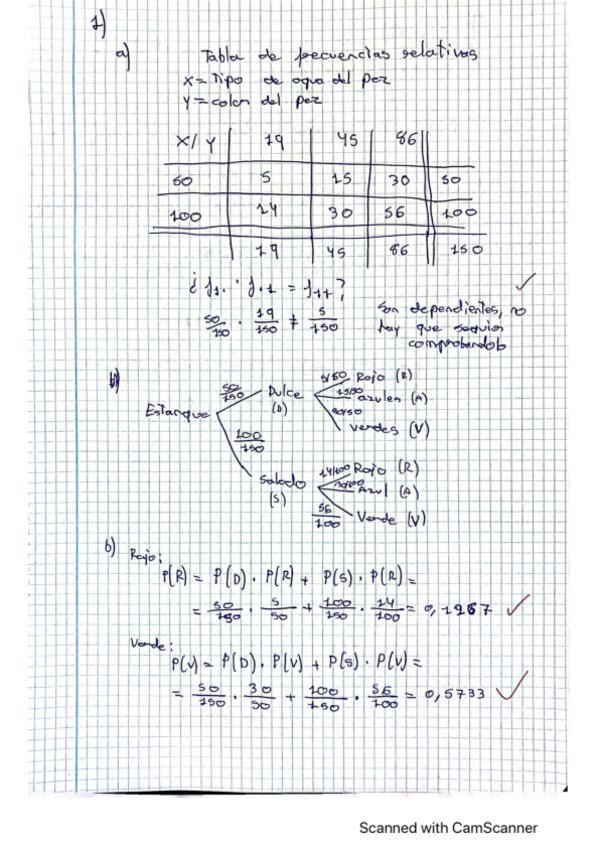 1)
a) Tabla de frecuencias relativas
X = Tipo de agua del pez
Y = color del pez
X/Y 19 45 86
50 5 15 30 50
100 14 30 56 100
19 45 86 150
¿ f1. · f.1 = f11?
50/150 · 19/150 ≠ 5/150
Son dependientes, no
hay que seguir
comprobandolo
50/150 Dulce (D) 5/50 Rojo (R)
15/50 azules (A)
30/50 verdes (V)
Estanque
100/150 Salado (S) 14/100 Rojo (R)
30/100 Azul (A)
56/100 Verde (V)
b) Rojo:
P(R) = P(D) · P(R) + P(S) · P(R) =
= 50/150 · 5/50 + 100/150 · 14/100 = 0,1267
Verde:
P(V) = P(D) · P(V) + P(S) · P(V) =
= 50/150 · 30/50 + 100/150 · 56/100 = 0,5733
Scanned with CamScanner